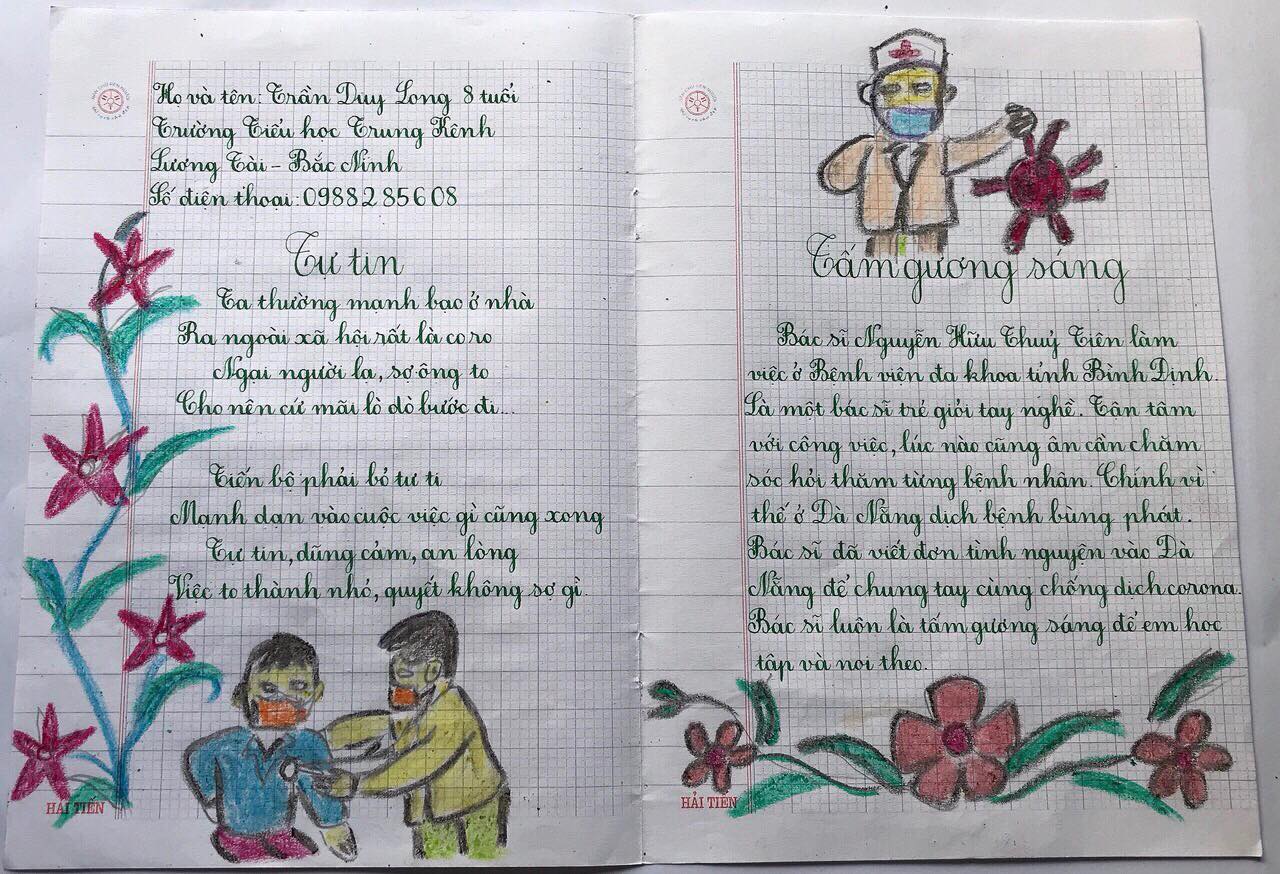 Họ và tên: Trần Duy Long 8 tuổi
Trường Tiểu học Trung Kênh
Lương Tài - Bắc Ninh
Số điện thoại: 0988285608
Tự tin
Ta thường mạnh bạo ở nhà
Ra ngoài xã hội rất là co ro
Ngại người lạ, sợ ông to
Cho nên cứ mãi lò dò bước đi...
Tiến bộ phải bỏ tự ti
Mạnh dạn vào cuộc việc gì cũng xong
Tự tin, dũng cảm, an lòng
Việc to thành nhỏ, quyết không sợ gì.
HẢI TIẾN
Tấm gương sáng
Bác sĩ Nguyễn Hữu Thuỷ Tiên làm
việc ở Bệnh viện đa khoa tỉnh Bình Định.
Là một bác sĩ trẻ giỏi tay nghề. Tận tâm
với công việc, lúc nào cũng ân cần chăm
sóc hỏi thăm từng bệnh nhân. Chính vì
thế ở Đà Nẵng dịch bệnh bùng phát.
Bác sĩ đã viết đơn tình nguyện vào Đà
Nẵng để chung tay cùng chống dịch corona.
Bác sĩ luôn là tấm gương sáng để em học
tập và noi theo.
HẢI TIẾN